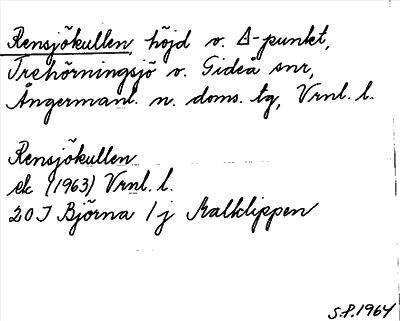 Rensjökullen, höjd o. Δ-punkt,
Trehörningsjö o. Gideå snr,
Ångermanl. n. doms. tg, Vrnl. l.
Rensjökullen
ek (1963) Vrnl. l.
20 J Björna 1 j Malklippen
S.P. 1964